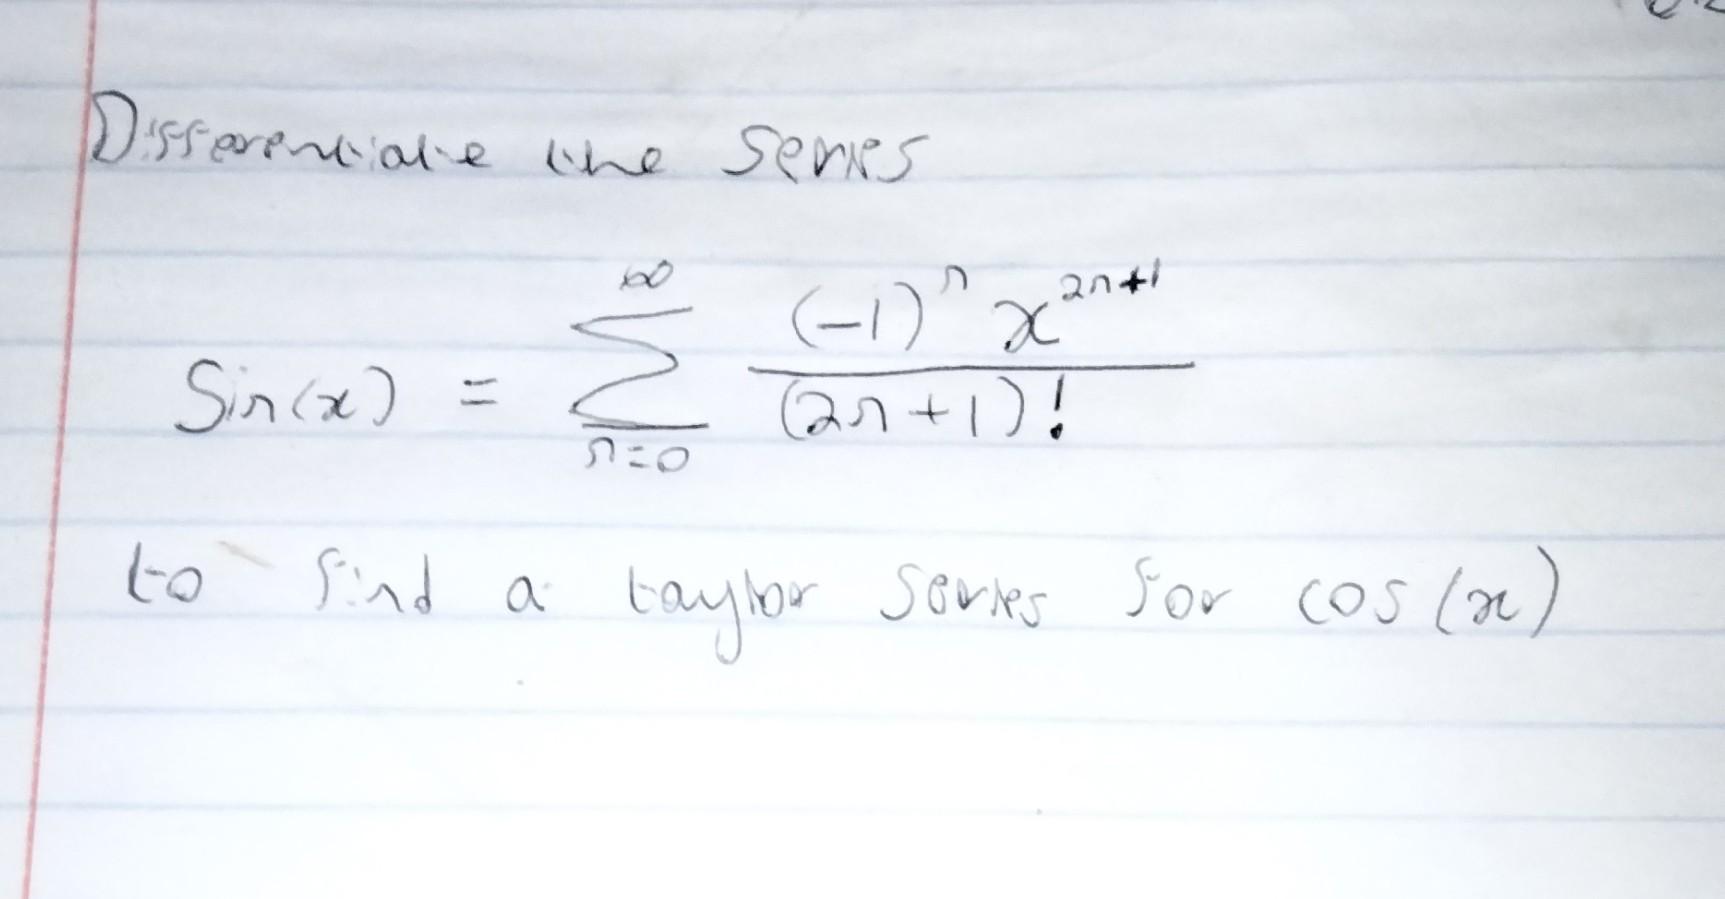 Differentiate the series
Sin(x) = ∞ ∑ n=0 (-1)^n x^2n+1 / (2n+1)!
to find a taylor series for cos(x)